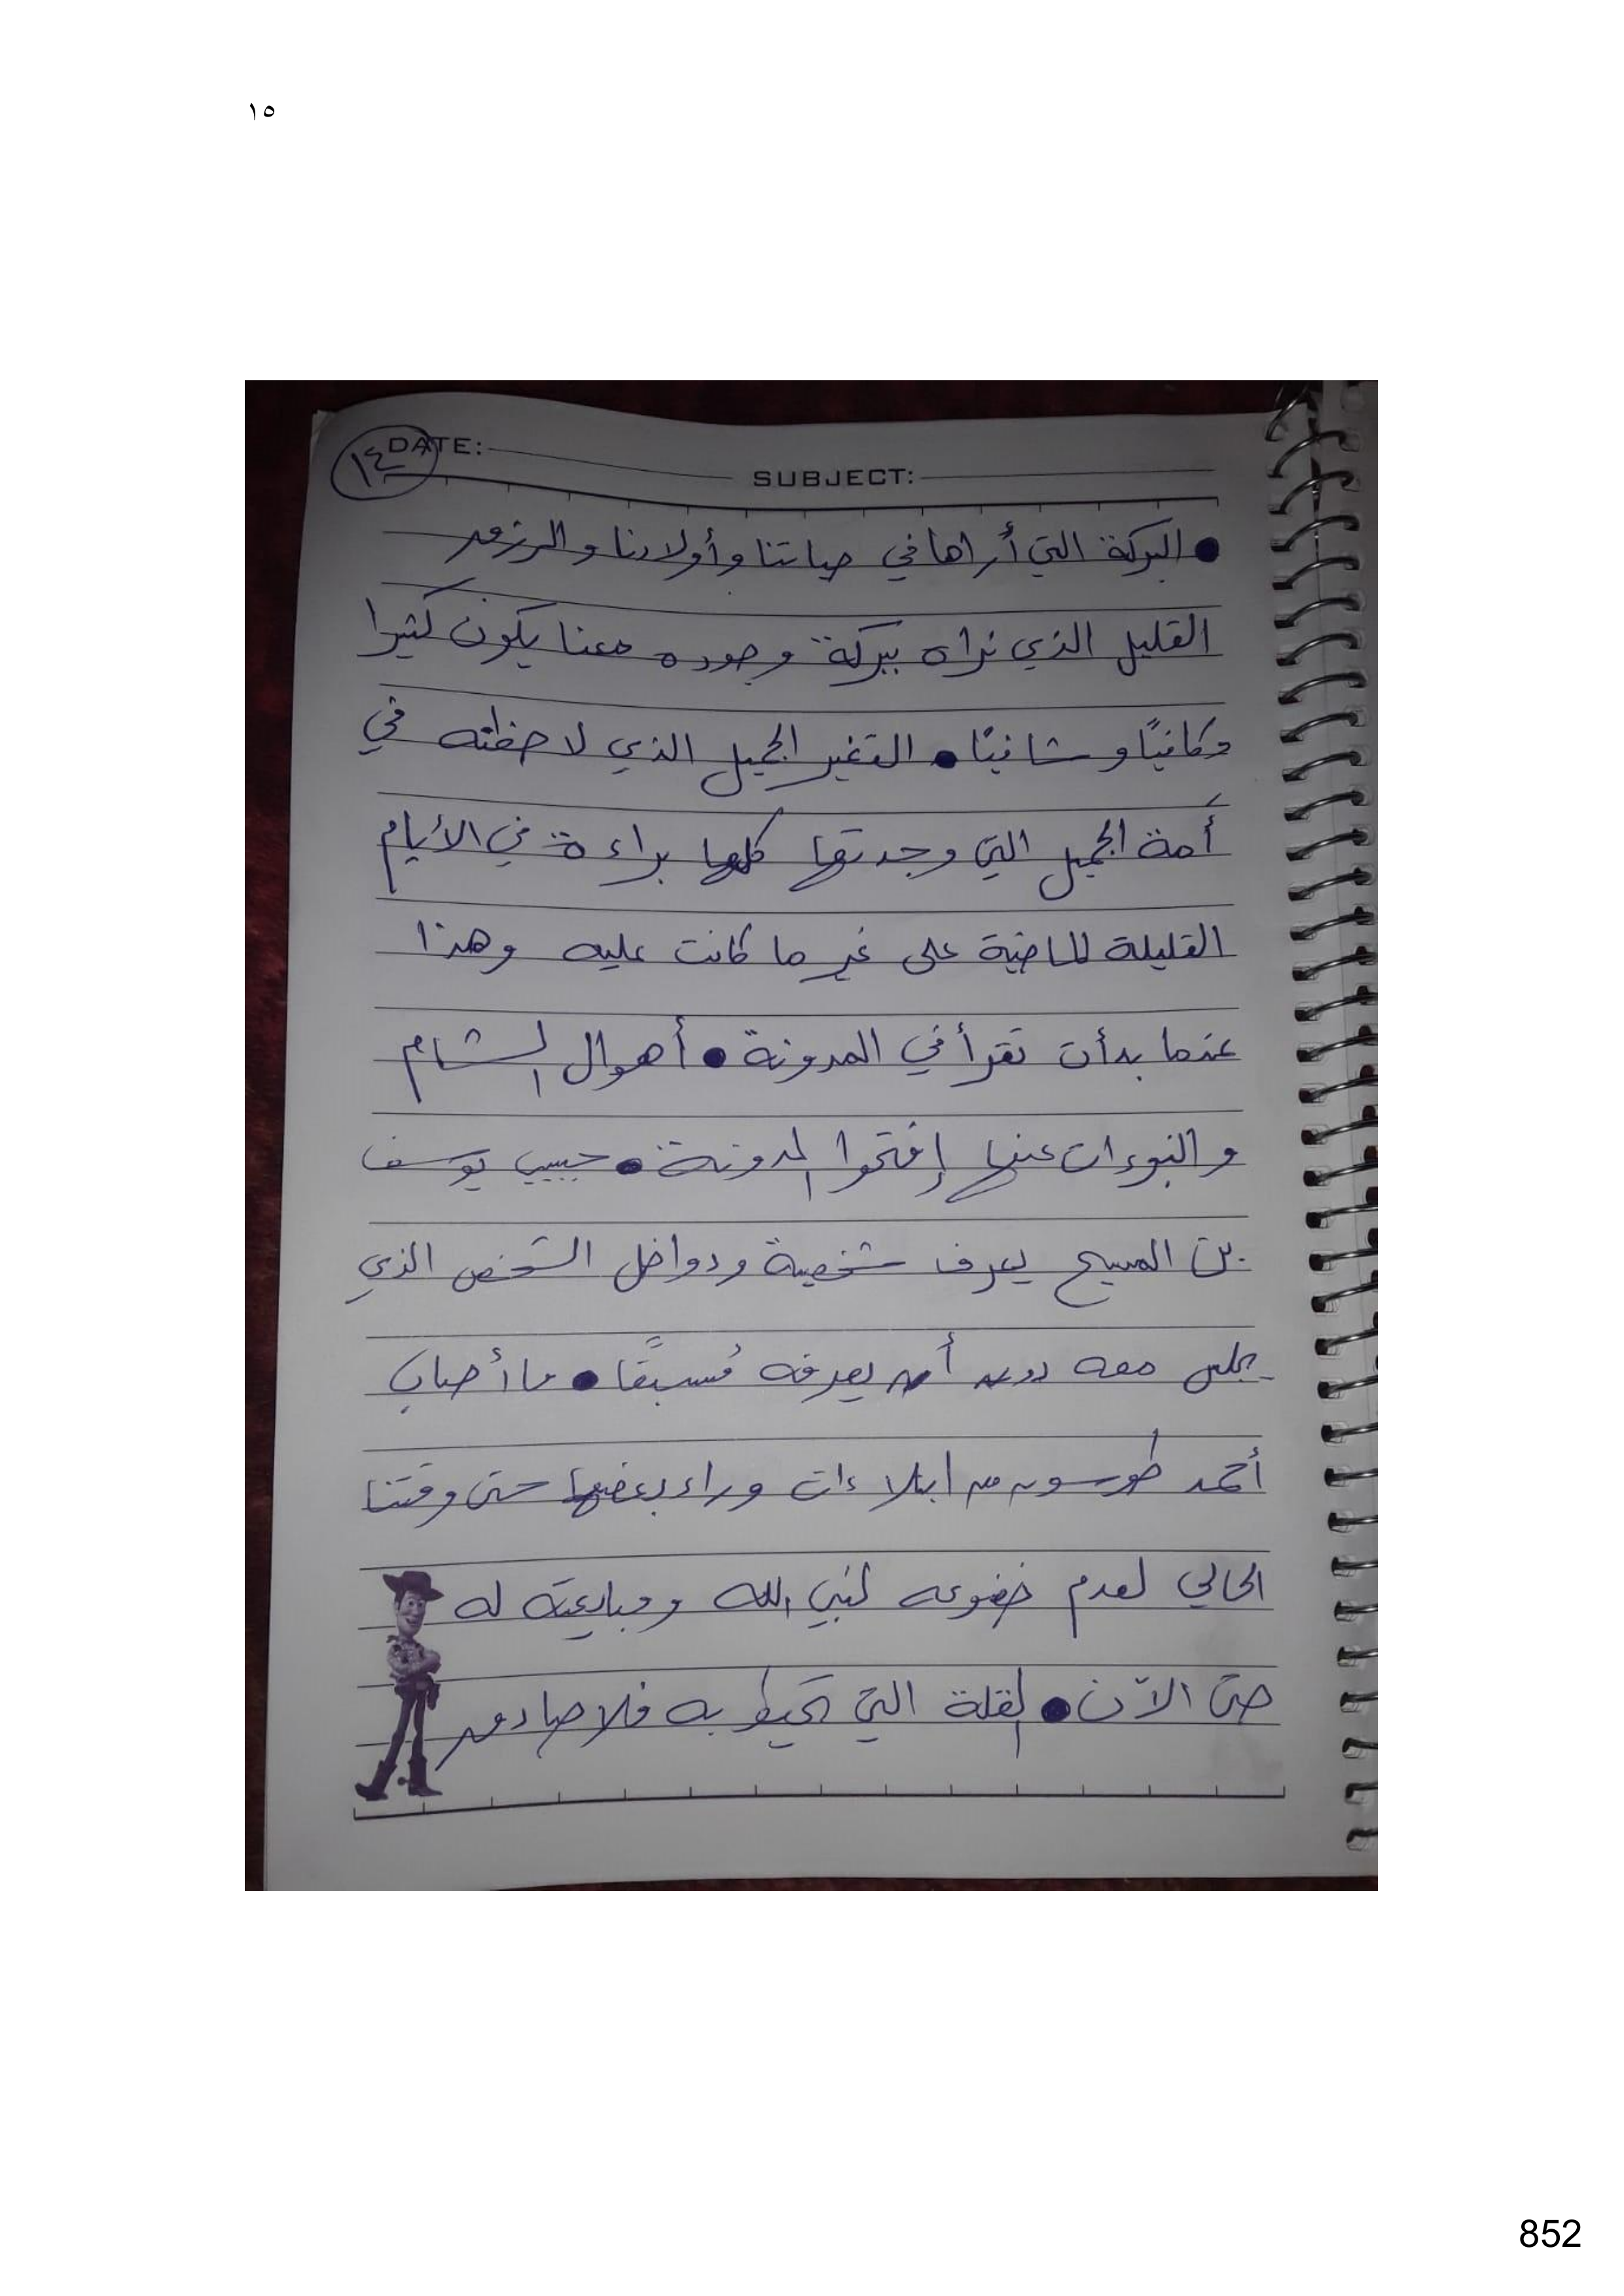 ١٥
١٤
DATE:
SUBJECT:
● البركة التي أراها في حياتنا وأولادنا والرزق
القليل الذي نراه ببركة وجوده معنا يكون كثيرا
وكافيًا وشافيًا ● التغير الجميل الذي لاحظته في
أمة الجميل التي وجدتها كلها براءة في الأيام
القليلة الماضية على غير ما كانت عليه وهذا
عندما بدأت تقرأ في المدونة ● أهوال الشام
والنبوءات عنها إفتحوا المدونة ● حبيبي يوسف
بن المسيح يعرف شخصية ودواخل الشخص الذي
يجلس معه دون أن يعرفه مُسبقًا ● ما أصاب
أحمد طرسون من ابتلاءات وراء بعضها حتى وقتنا
الحالي لعدم خضوعه لنبي الله ومبايعته له
حتى الآن ● القلة التي تحيط به فلا صادق
852